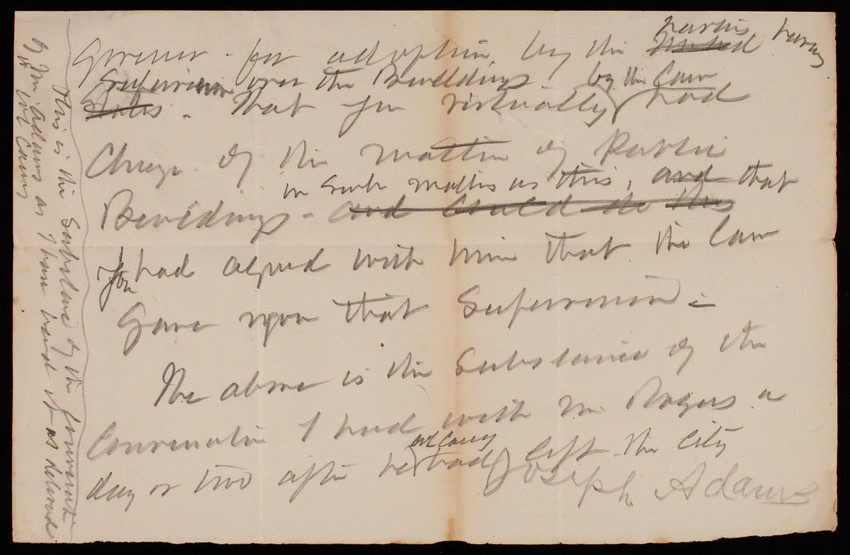 Governor - for adoption by the parties having
supervision over the Buildings by the Law
States. That you virtually had
Charge of the matter of Public
in such matters as this, and that
Buildings - and could do this
You had agreed with him that the law
Gave you that Supervision -
The above is the Substance of the
Conversation I had with Mr Rogers a
day or two after he had left the City
Col Casey
Joseph Adams
This is the Substance of the
of Mr. Adams as I have heard it as delivered
to Col Casey